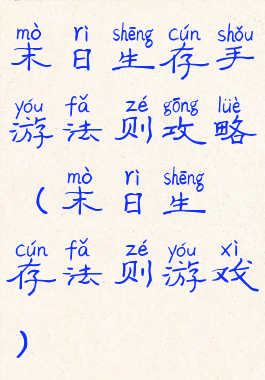 mò rì shēng cún shǒu
末日生存手
yóu fǎ zé gōng lüè
游法则攻略
mò rì shēng
（末日生
cún fǎ zé yóu xì
存法则游戏
）